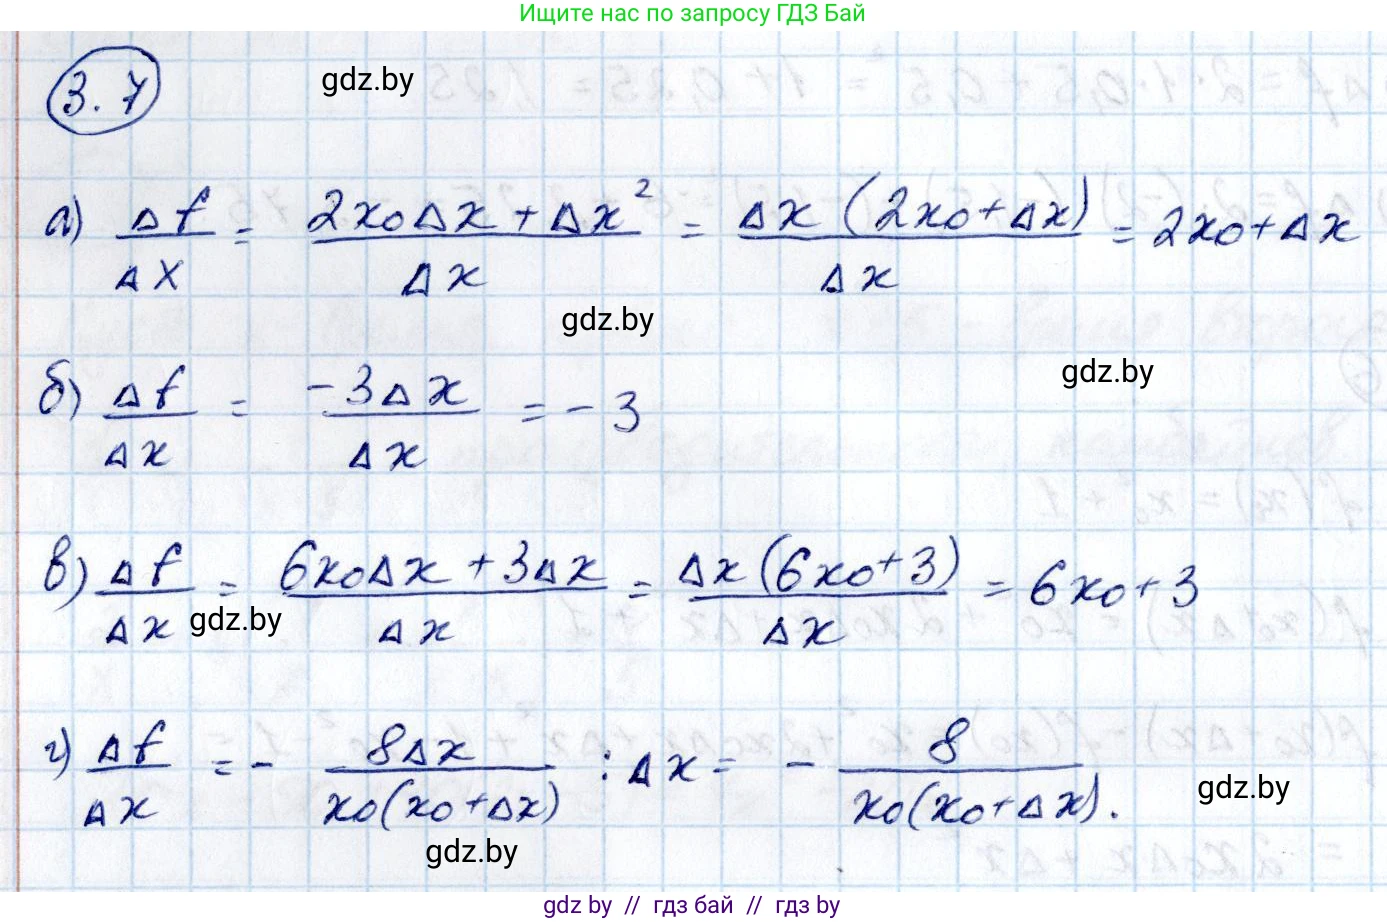 Ищите нас по запросу ГДЗ Бай
3.7
gdz.by
а) Δf/Δx = (2x₀Δx + Δx²)/Δx = Δx(2x₀ + Δx)/Δx = 2x₀ + Δx
gdz.by
gdz.by
б) Δf/Δx = -3Δx/Δx = -3
в) Δf/Δx = (6x₀Δx + 3Δx)/Δx = Δx(6x₀ + 3)/Δx = 6x₀ + 3
gdz.by
г) Δf/Δx = - 8Δx/(x₀(x₀ + Δx)) : Δx = - 8/(x₀(x₀ + Δx)).
gdz.by
gdz.by
gdz by // гдз бай // гдз by